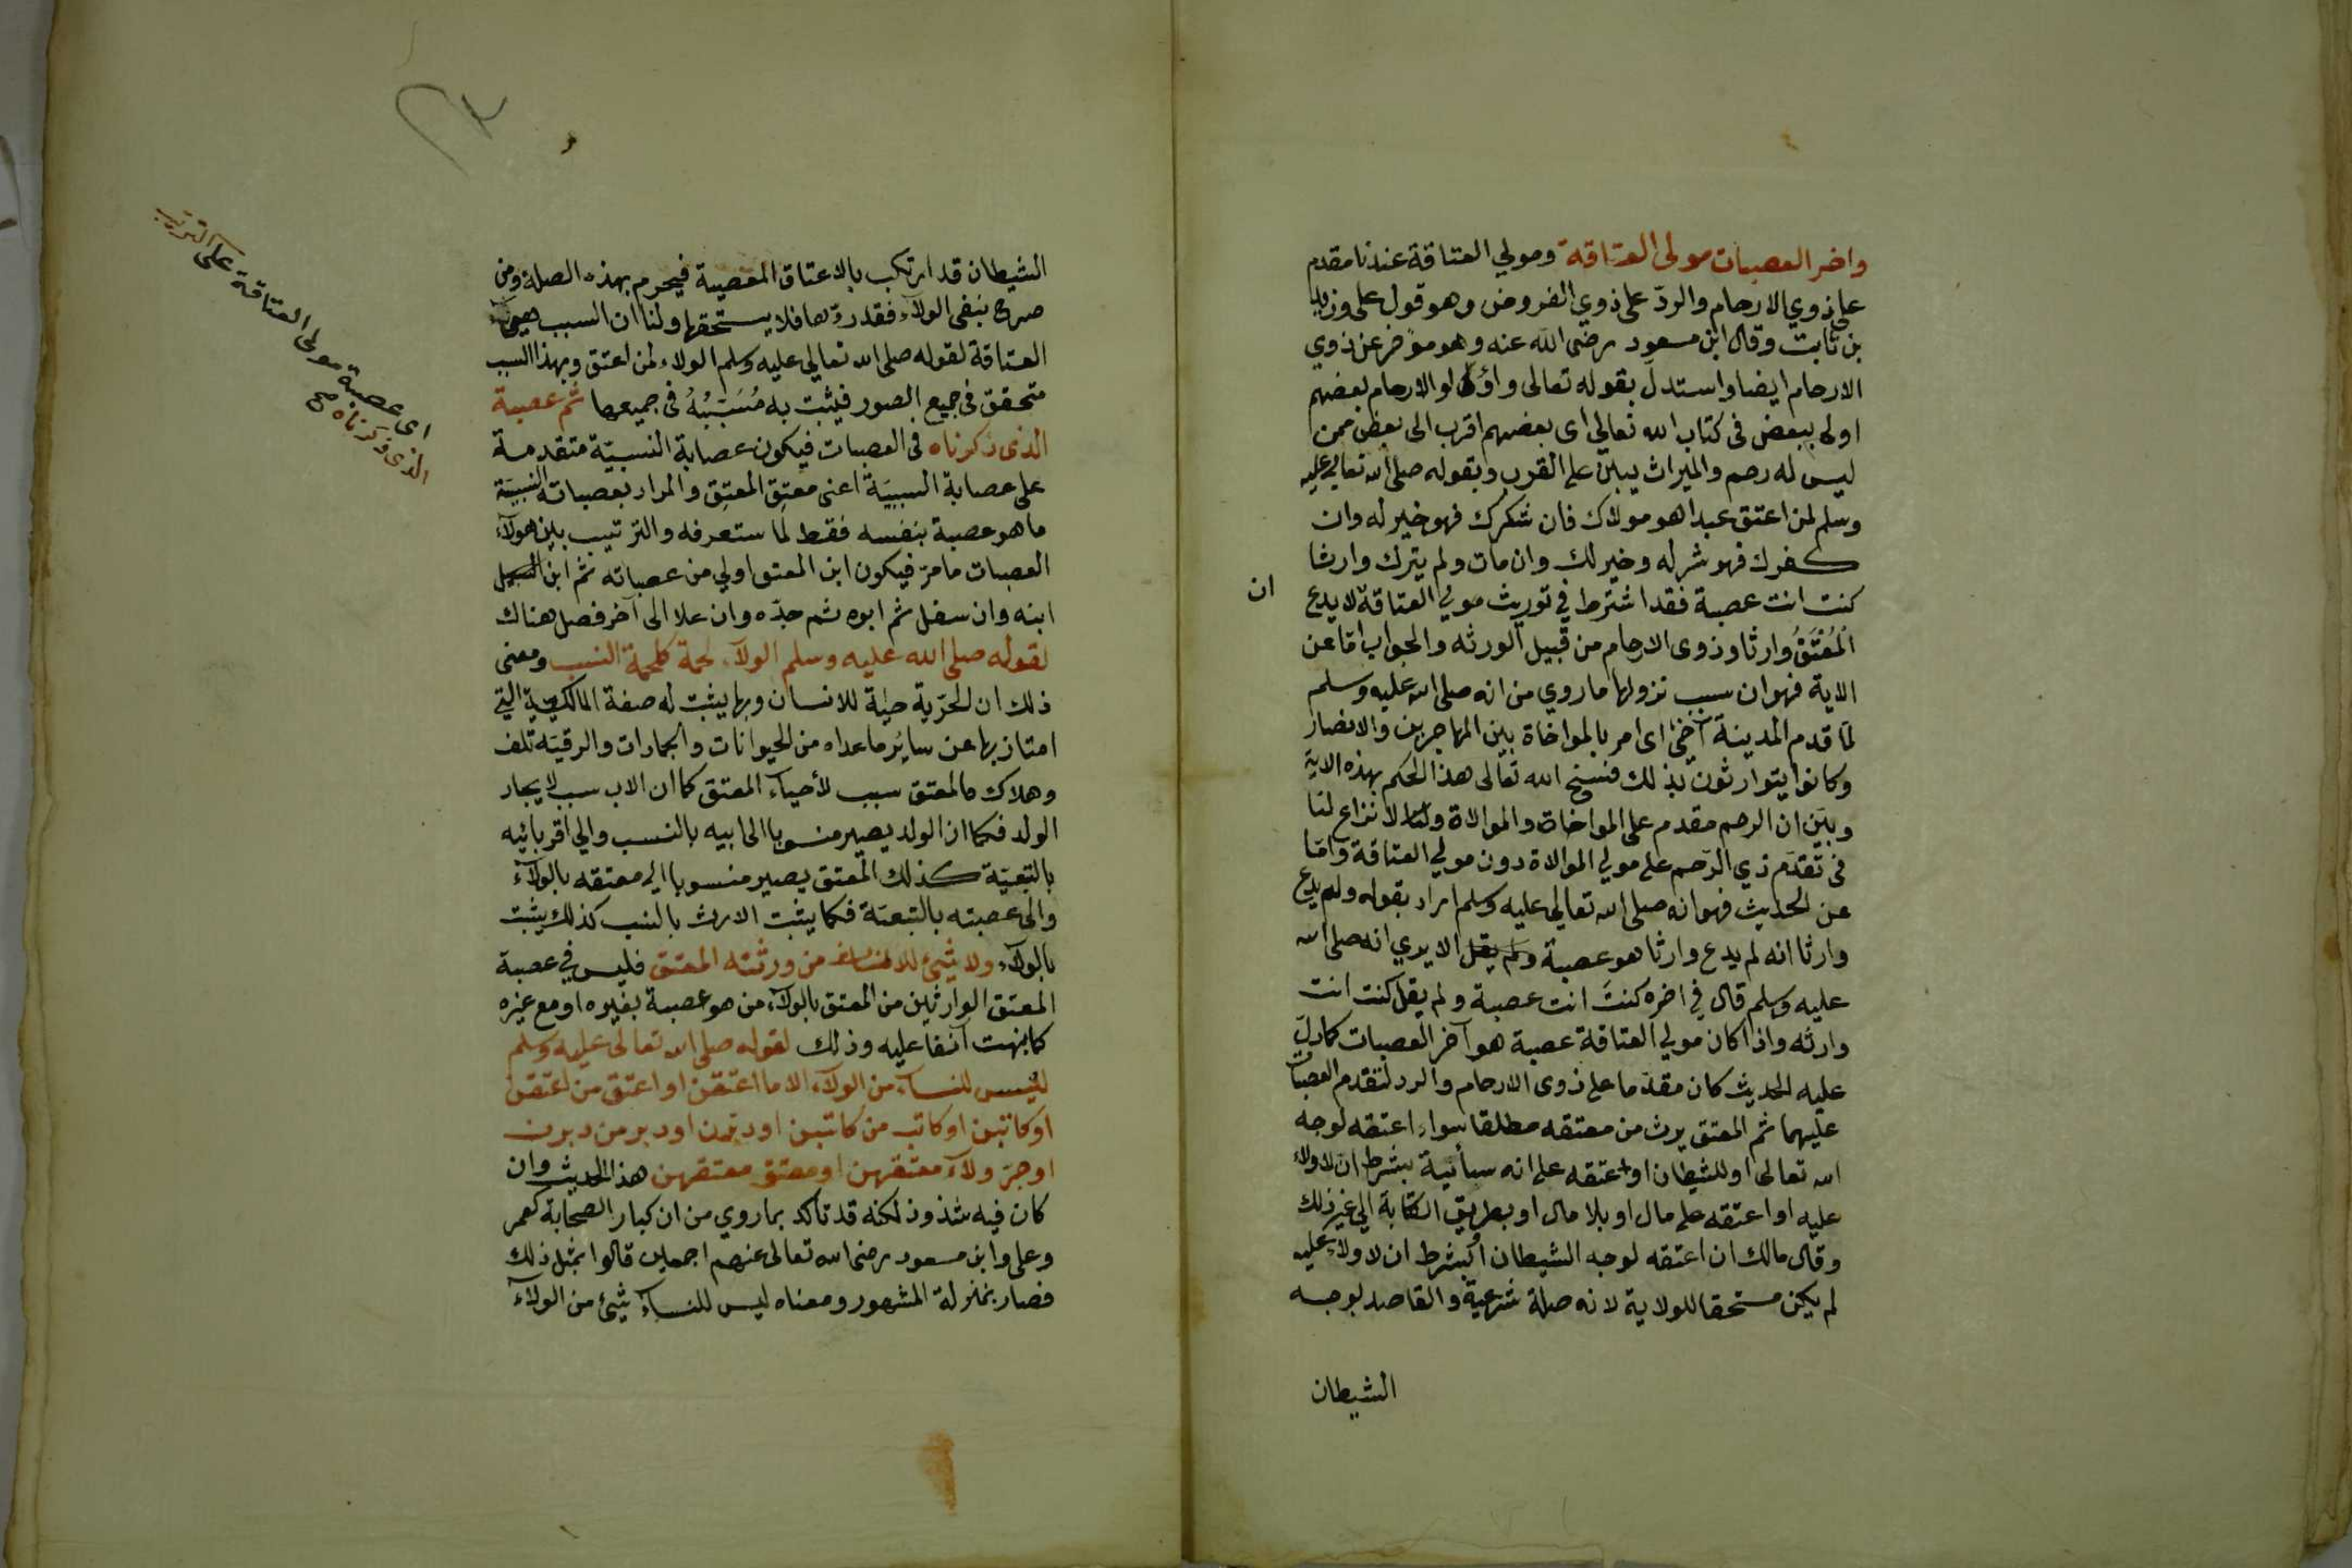 واخر العصبات مولى العتاقة ومولي العتاقة عندنا مقدم
على ذوي الارحام والردّ على ذوي الفروض وهو قول على وزيد
بن ثابت وقال ابن مسعود رضى الله عنه وهو مؤخر عن ذوي
الارحام ايضا واستدل بقوله تعالى واولوا الارحام بعضهم
اولى ببعض فى كتاب الله تعالي اى بعضهم اقرب الى بعض ممن
ليس له رحم والميراث يبنى على القرب وبقوله صلى الله تعالي عليه
وسلم لمن اعتق عبدا هو مولاك فان شكرك فهو خير له وان
كفرك فهو شر له وخير لك وان مات ولم يترك وارثا
كنت انت عصبة فقد اشترط في توريث مولى العتاقة لا يدع
ان
المُعْتَقُ وارثا وذوى الارحام من قبيل الورثه والجواب امّا عن
الاية فهو ان سبب نزولها ما روي من انه صلى الله عليه وسلم
لمّا قدم المدينة آخىٰ اى امر بالمواخاة بين المهاجرين والانصار
وكانوا يتوارثون بذلك فنسخ الله تعالى هذا الحكم بهذه الاية
وبيّن ان الرحم مقدم على المواخاة والموالاة ولنا لا نزاع لنا
فى تقدّم ذي الرّحم على مولي الموالاة دون مولي العتاقة وامّا
عن الحديث فهو انه صلى الله تعالي عليه وسلم اراد بقوله ولم يدع
وارثا انه لم يدع وارثا هو عصبة ولم يقل الا يرى انه صلى الله
عليه وسلم قال في اخره كنتَ انت عصبة ولم يقل كنت انت
وارثه واذا كان مولي العتاقة عصبة هو آخر العصبات كما دلّ
عليه الحديث كان مقدّما على ذوى الارحام والرد لتقدم العصبات
عليهما ثم المعتق يرث من معتقه مطلقا سواء اعتقه لوجه
الله تعالى او للشيطان او اعتقه على انه سائبة بشرط ان لا ولاء
عليه او اعتقه على مال او بلا مال او بطريق الكتابة الي غير ذلك
وقال مالك ان اعتقه لوجه الشيطان او بشرط ان لا ولاء عليه
لم يكن مستحقا للولاية لانه صلة شرعية والقاصد لوجه
الشيطان
الشيطان قد ارتكب بالاعتاق المعصية فيحرم بهذه الصلة ومن
صرح بنفى الولاء فقد ردّها فلا يستحقها ولنا ان السبب
العتاقة لقوله صلى الله تعالي عليه وسلم الولاء لمن اعتق وبهذا السبب
متحقق فى جميع الصور فيثبت به مُسَبَّبُهُ فى جميعها ثم عصبة
اى عصبة مولى العتاقة على الترتيب
الذى ذكرناه صح
الذى ذكرناه فى العصبات فيكون عصابة النسبيّة متقدمة
على عصابة السببيّة اعنى معتِق المعتِق والمراد بعصباته النسبيّة
ما هو عصبة بنفسه فقط لما ستعرفه والترتيب بين هولآء
العصبات ما مرّ فيكون ابن المعتق اولي من عصباته ثم ابن
ابنه وان سفل ثم ابوه ثم جدّه وان علا الى آخر فصل هناك
لقوله صلى الله عليه وسلم الولآء لحمة كلحمة النسب ومعنى
ذلك ان الحرّية حيٰة للانسان وبها يثبت له صفة المالكية التى
امتاز بها عن سائر ما عداه من الحيوانات والجمادات والرقيّه تلف
وهلاك فالمعتق سبب لأحياء المعتق كما ان الاب سبب لايجاد
الولد فكما ان الولد يصير منسوبا الى ابيه بالنسب والي اقربائيه
بالتبعيّة كذلك المعتق يصير منسوبا الى معتقه بالولآء
والى عصبته بالتبعيّة فكما يثبت الارث بالنسب كذلك يثبت
بالولآء ولا شئ للاناث من ورثته المعتق فليس في عصبة
المعتق الوارثين من المعتق بالولآء من هو عصبة بغيره او مع غيره
كما نبهت آنفا عليه وذلك لقوله صلى الله تعالى عليه وسلم
ليس للنسآء من الولآء الا ما اعتقن او اعتق من اعتقن
او كاتبن او كاتب من كاتبن او دبرن او دبر من دبرن
او جرّ ولآء معتقهن او معتق معتقهن هذا الحديث وان
كان فيه شذوذ لكنه قد تأكد بما روي من ان كبار الصحابة كعمر
وعلى وابن مسعود رضى الله تعالى عنهم اجمعين قالوا بمثل ذلك
فصار بمنزلة المشهور ومعناه ليس للنسآء شئ من الولآء